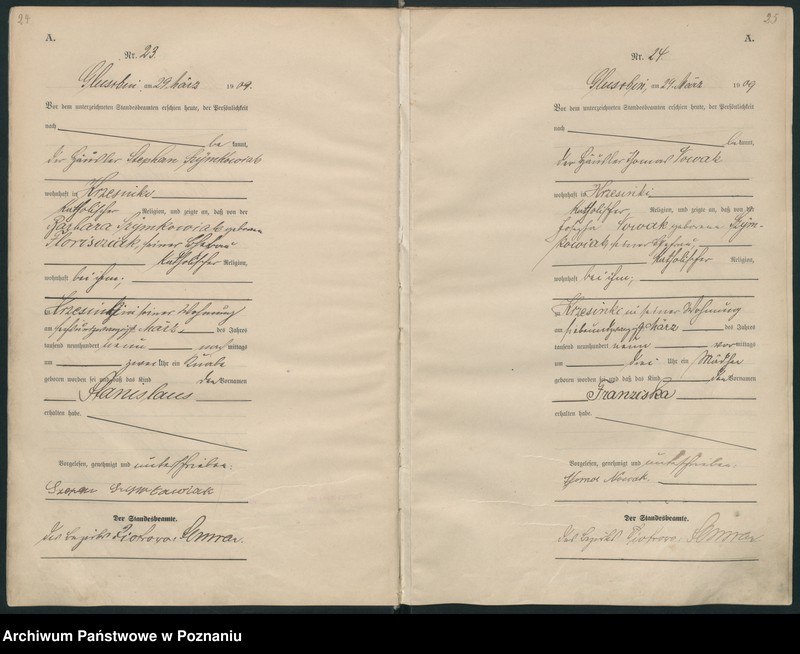 24
A.
Nr. 23.
am 29. März 1909.
Vor dem unterzeichneten Standesbeamten erschien heute, der Persönlichkeit
nach
be kannt,
der Häusler Stephan Szymkowiak
wohnhaft in Krzesinki
katholischer Religion, und zeigte an, daß von der
Barbara Szymkowiak geborene
seiner Ehefrau
katholischer Religion,
wohnhaft bei ihm;
in seiner Wohnung
am sechsundzwanzigsten März des Jahres
tausend neunhundert neun mittags
um zwei Uhr ein Knabe
geboren worden sei und daß das Kind den Vornamen
Stanislaus
erhalten habe.
Vorgelesen, genehmigt und unterschrieben:
Der Standesbeamte.
des Bezirks Piotrowo
25
A.
Nr. 24.
am 29. März 1909
Vor dem unterzeichneten Standesbeamten erschien heute, der Persönlichkeit
nach
be kannt,
der Häusler Thomas Nowak
wohnhaft in Krzesinki
katholischer Religion, und zeigte an, daß von der
Nowak geborene Szym-
kowiak, seiner Ehefrau,
katholischer Religion,
wohnhaft bei ihm;
zu Krzesinki in seiner Wohnung
am siebenundzwanzigsten März des Jahres
tausend neunhundert neun vormittags
um drei Uhr ein Mädchen
geboren worden sei und daß das Kind den Vornamen
Franziska
erhalten habe.
Vorgelesen, genehmigt und unterschrieben:
Thomas Nowak.
Der Standesbeamte.
des Bezirks Piotrowo
Archiwum Państwowe w Poznaniu